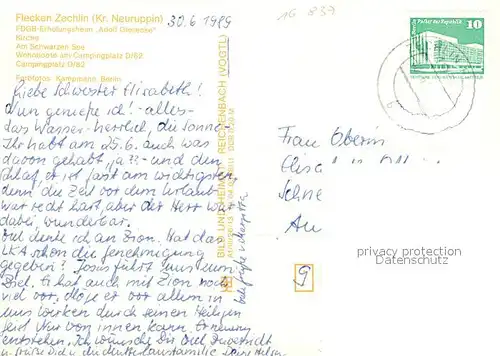 Flecken Zechlin (Kr. Neuruppin)
30.6 1989
FDGB-Erholungsheim „Adolf Diemecke"
Kirche
Am Schwarzen See
Wohnboote am Campingplatz D/62
Campingplatz D/62
Farbfotos: Kampmann, Berlin
Liebe Schwester Elisabeth!
Nun genieße ich! - alles-
das Wasser-herrlich, die Sonne-
Ihr habt am 25.6. auch was
davon gehabt, ja?? - und den
Schlaf, er ist fast am wichtigsten,
denn die Zeit vor dem Urlaub
war recht hart, aber der Herr war
dabei wunderbar.
Viel denke ich an Zion. Hat das
LKA schon die Genehmigung
gegeben? Jesus führt uns zum
Ziel. Er hat auch mit Zion noch
viel vor, er vor allem in
uns wirken durch seinen Heiligen
Geist. Nur von innen kann Erneuerung
entstehen. Ich wünsche Dir viel Zuversicht
BILD UND HEIMAT REICHENBACH (VOGTL)
10
Frau Oberin
Schne
privacy protection
Datenschutz
9